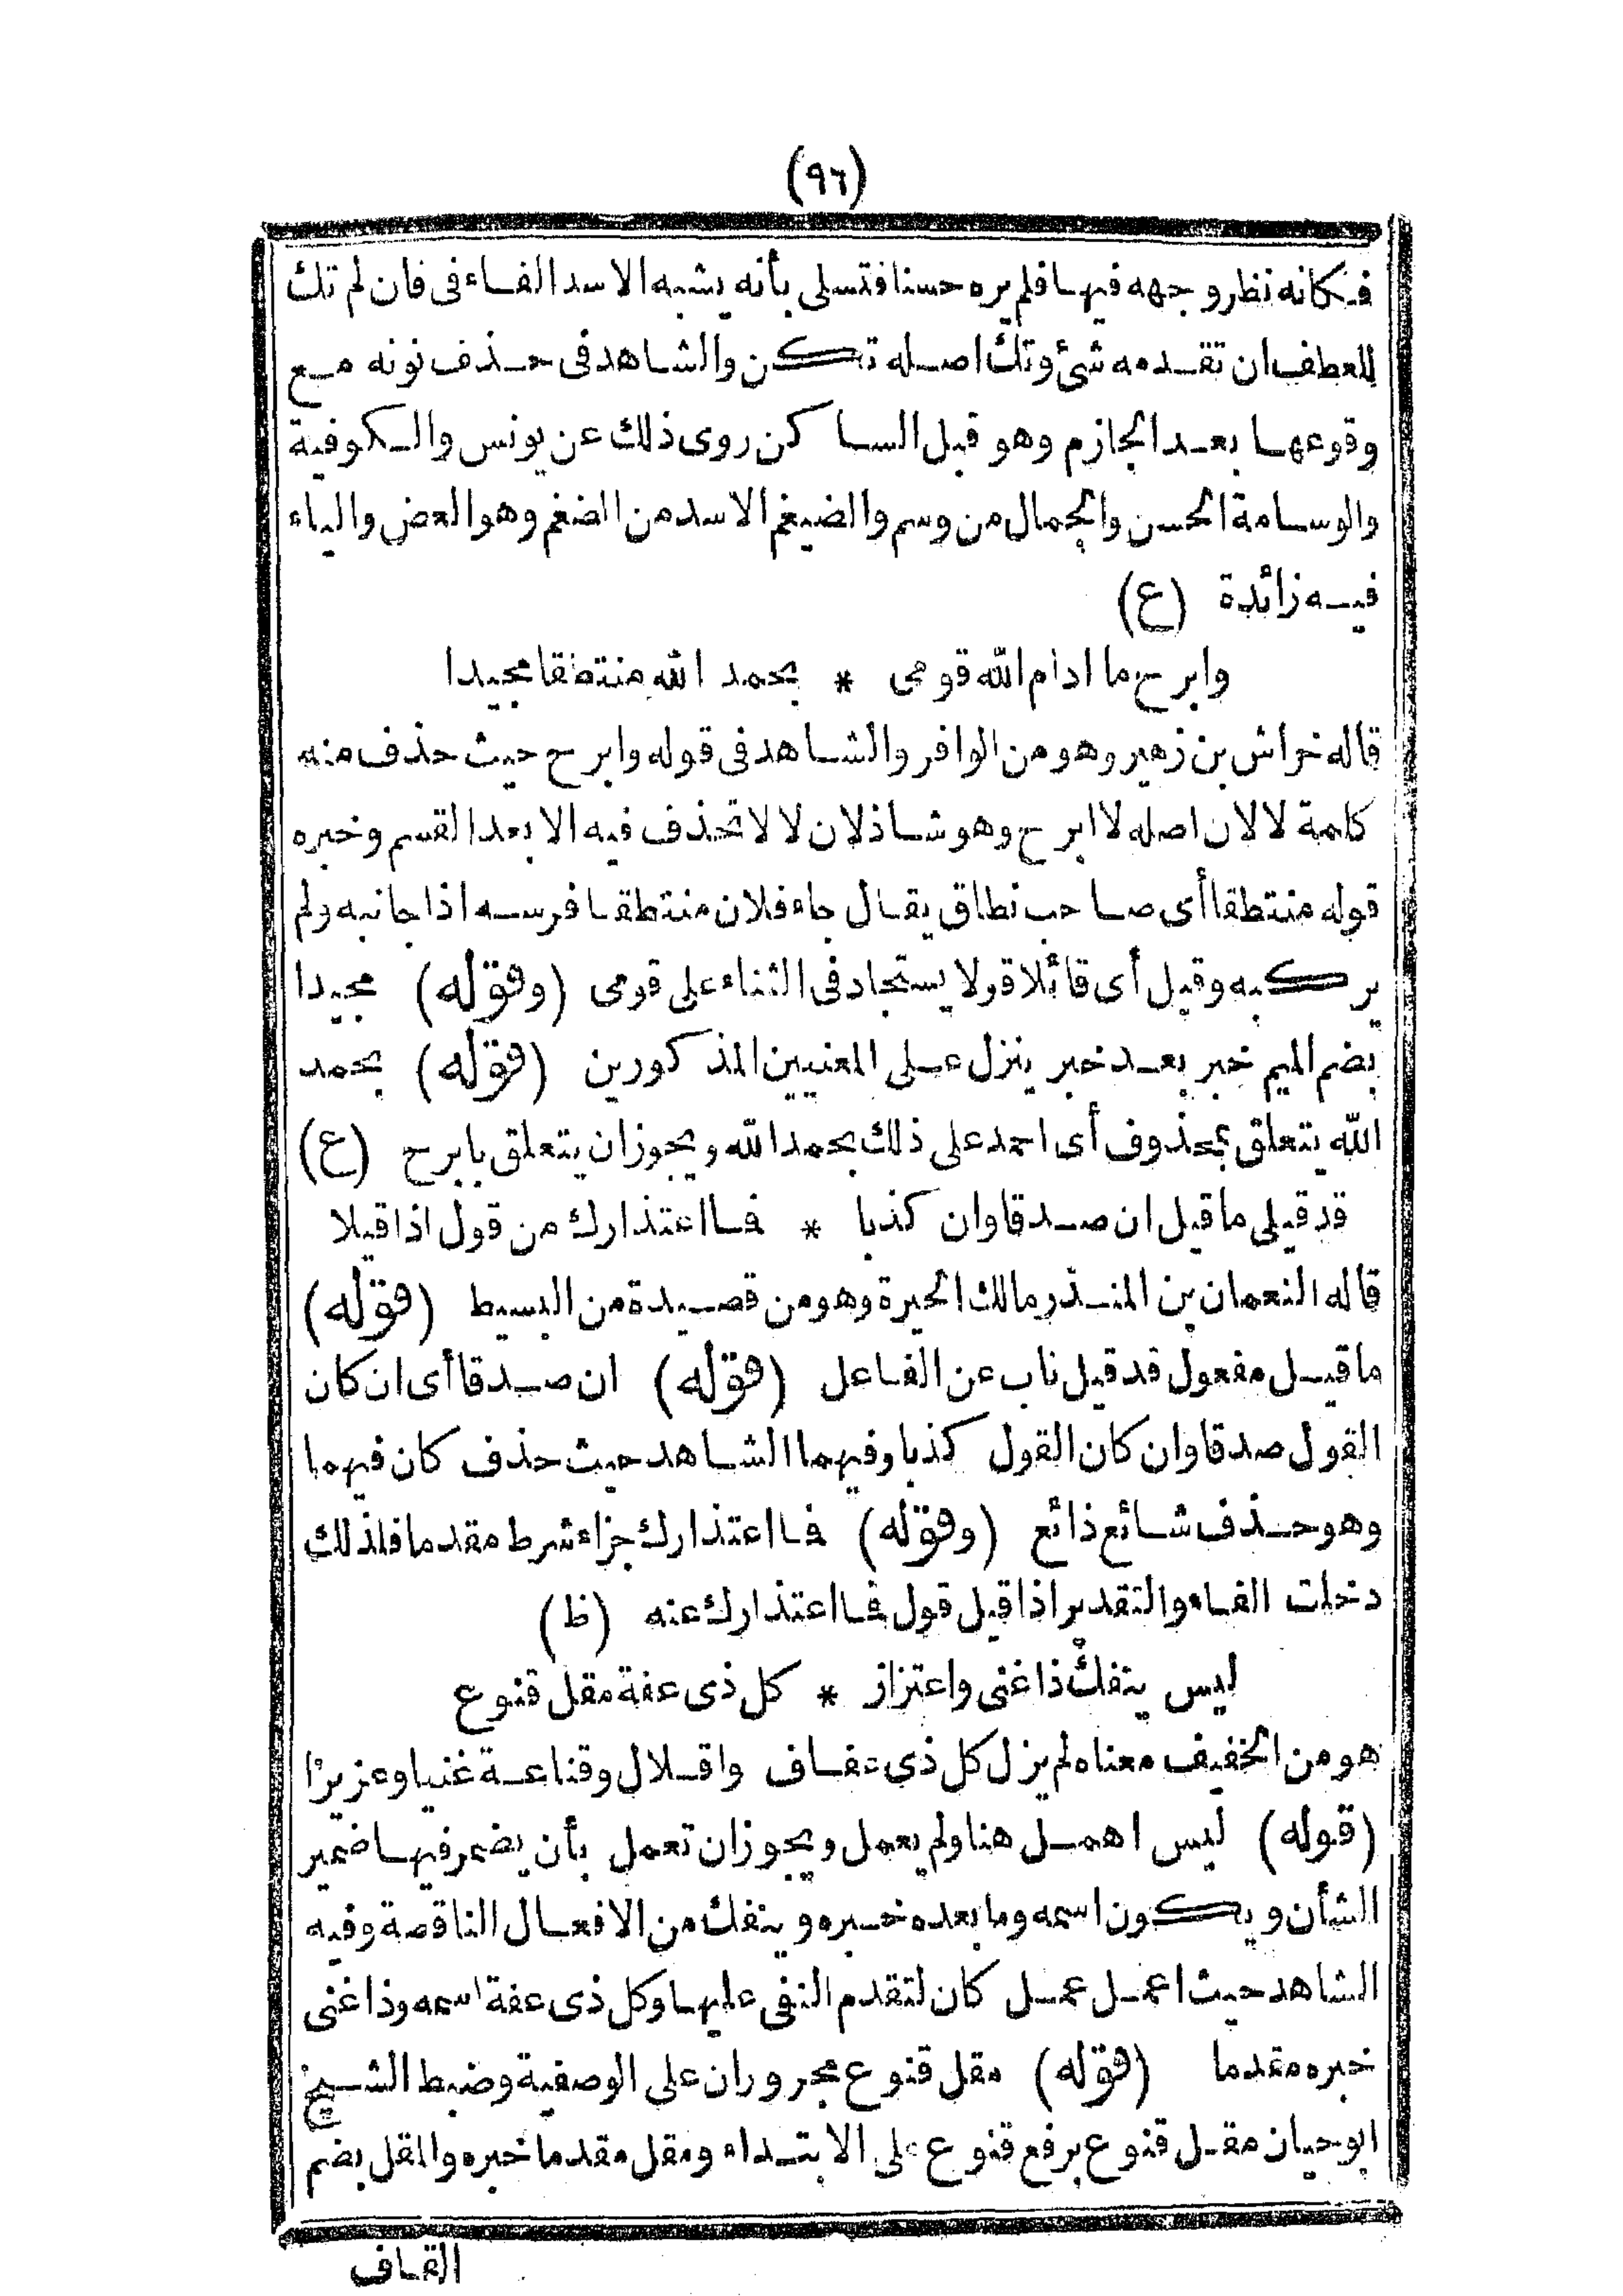 (٩٦)
فكانه نظر وجهه فيها فلم يره حسنا فتسلى بأنه يشبه الاسد الفاء فى فان لم تك
للعطف ان تقدمه شئ وتك اصله تكن والشاهد فى حذف نونه مع
وقوعها بعد الجازم وهو قبل الساكن روى ذلك عن يونس والكوفية
والوسامة الحسن والجمال من وسم والضيغم الاسد من الضغم وهو العض والياء
فيه زائدة (ع)
وابرح ما ادام الله قومى * بحمد الله منتطقا مجيدا
قاله خراش بن زهير وهو من الوافر والشاهد فى قوله وابرح حيث حذف منه
كلمة لا لان اصله لا ابرح وهو شاذ لان لا لا تحذف فيه الا بعد القسم وخبره
قوله منتطقا أى صاحب نطاق يقال جاء فلان منتطقا فرسه اذا جانبه ولم
يركبه وقيل أى قائلا قولا يستجاد فى الثناء على قومى (وقوله) مجيدا
بضم الميم خبر بعد خبر ينزل على المعنيين المذكورين (قوله) بحمد
الله يتعلق بمحذوف أى احمد على ذلك بحمد الله ويجوز ان يتعلق بابرح (ع)
قد قيل ما قيل ان صدقا وان كذبا * فما اعتذارك من قول اذا قيلا
قاله النعمان بن المنذر مالك الحيرة وهو من قصيدة من البسيط (قوله)
ما قيل مفعول قد قيل ناب عن الفاعل (قوله) ان صدقا أى ان كان
القول صدقا وان كان القول كذبا وفيهما الشاهد حيث حذف كان فيهما
وهو حذف شائع ذائع (وقوله) فما اعتذارك جزاء شرط مقدما فلذلك
دخلت الفاء والتقدير اذا قيل قول فما اعتذارك عنه (ظ)
ليس ينفك ذا غنى واعتزاز * كل ذى عفة مقل قنوع
هو من الخفيف معناه لم يزل كل ذى عفاف واقلال وقناعة غنيا وعزيزا
(قوله) ليس اهمل هنا ولم يعمل ويجوز ان تعمل بأن يضمر فيها ضمير
الشأن ويكون اسمه وما بعده خبره وينفك من الافعال الناقصة وفيه
الشاهد حيث اعمل عمل كان لتقدم النفى عليها وكل ذى عفة اسمه وذا غنى
خبره مقدما (قوله) مقل قنوع مجروران على الوصفية وضبط الشيخ
ابو حيان مقل قنوع برفع قنوع على الابتداء ومقل مقدما خبره والمقل بضم
القاف